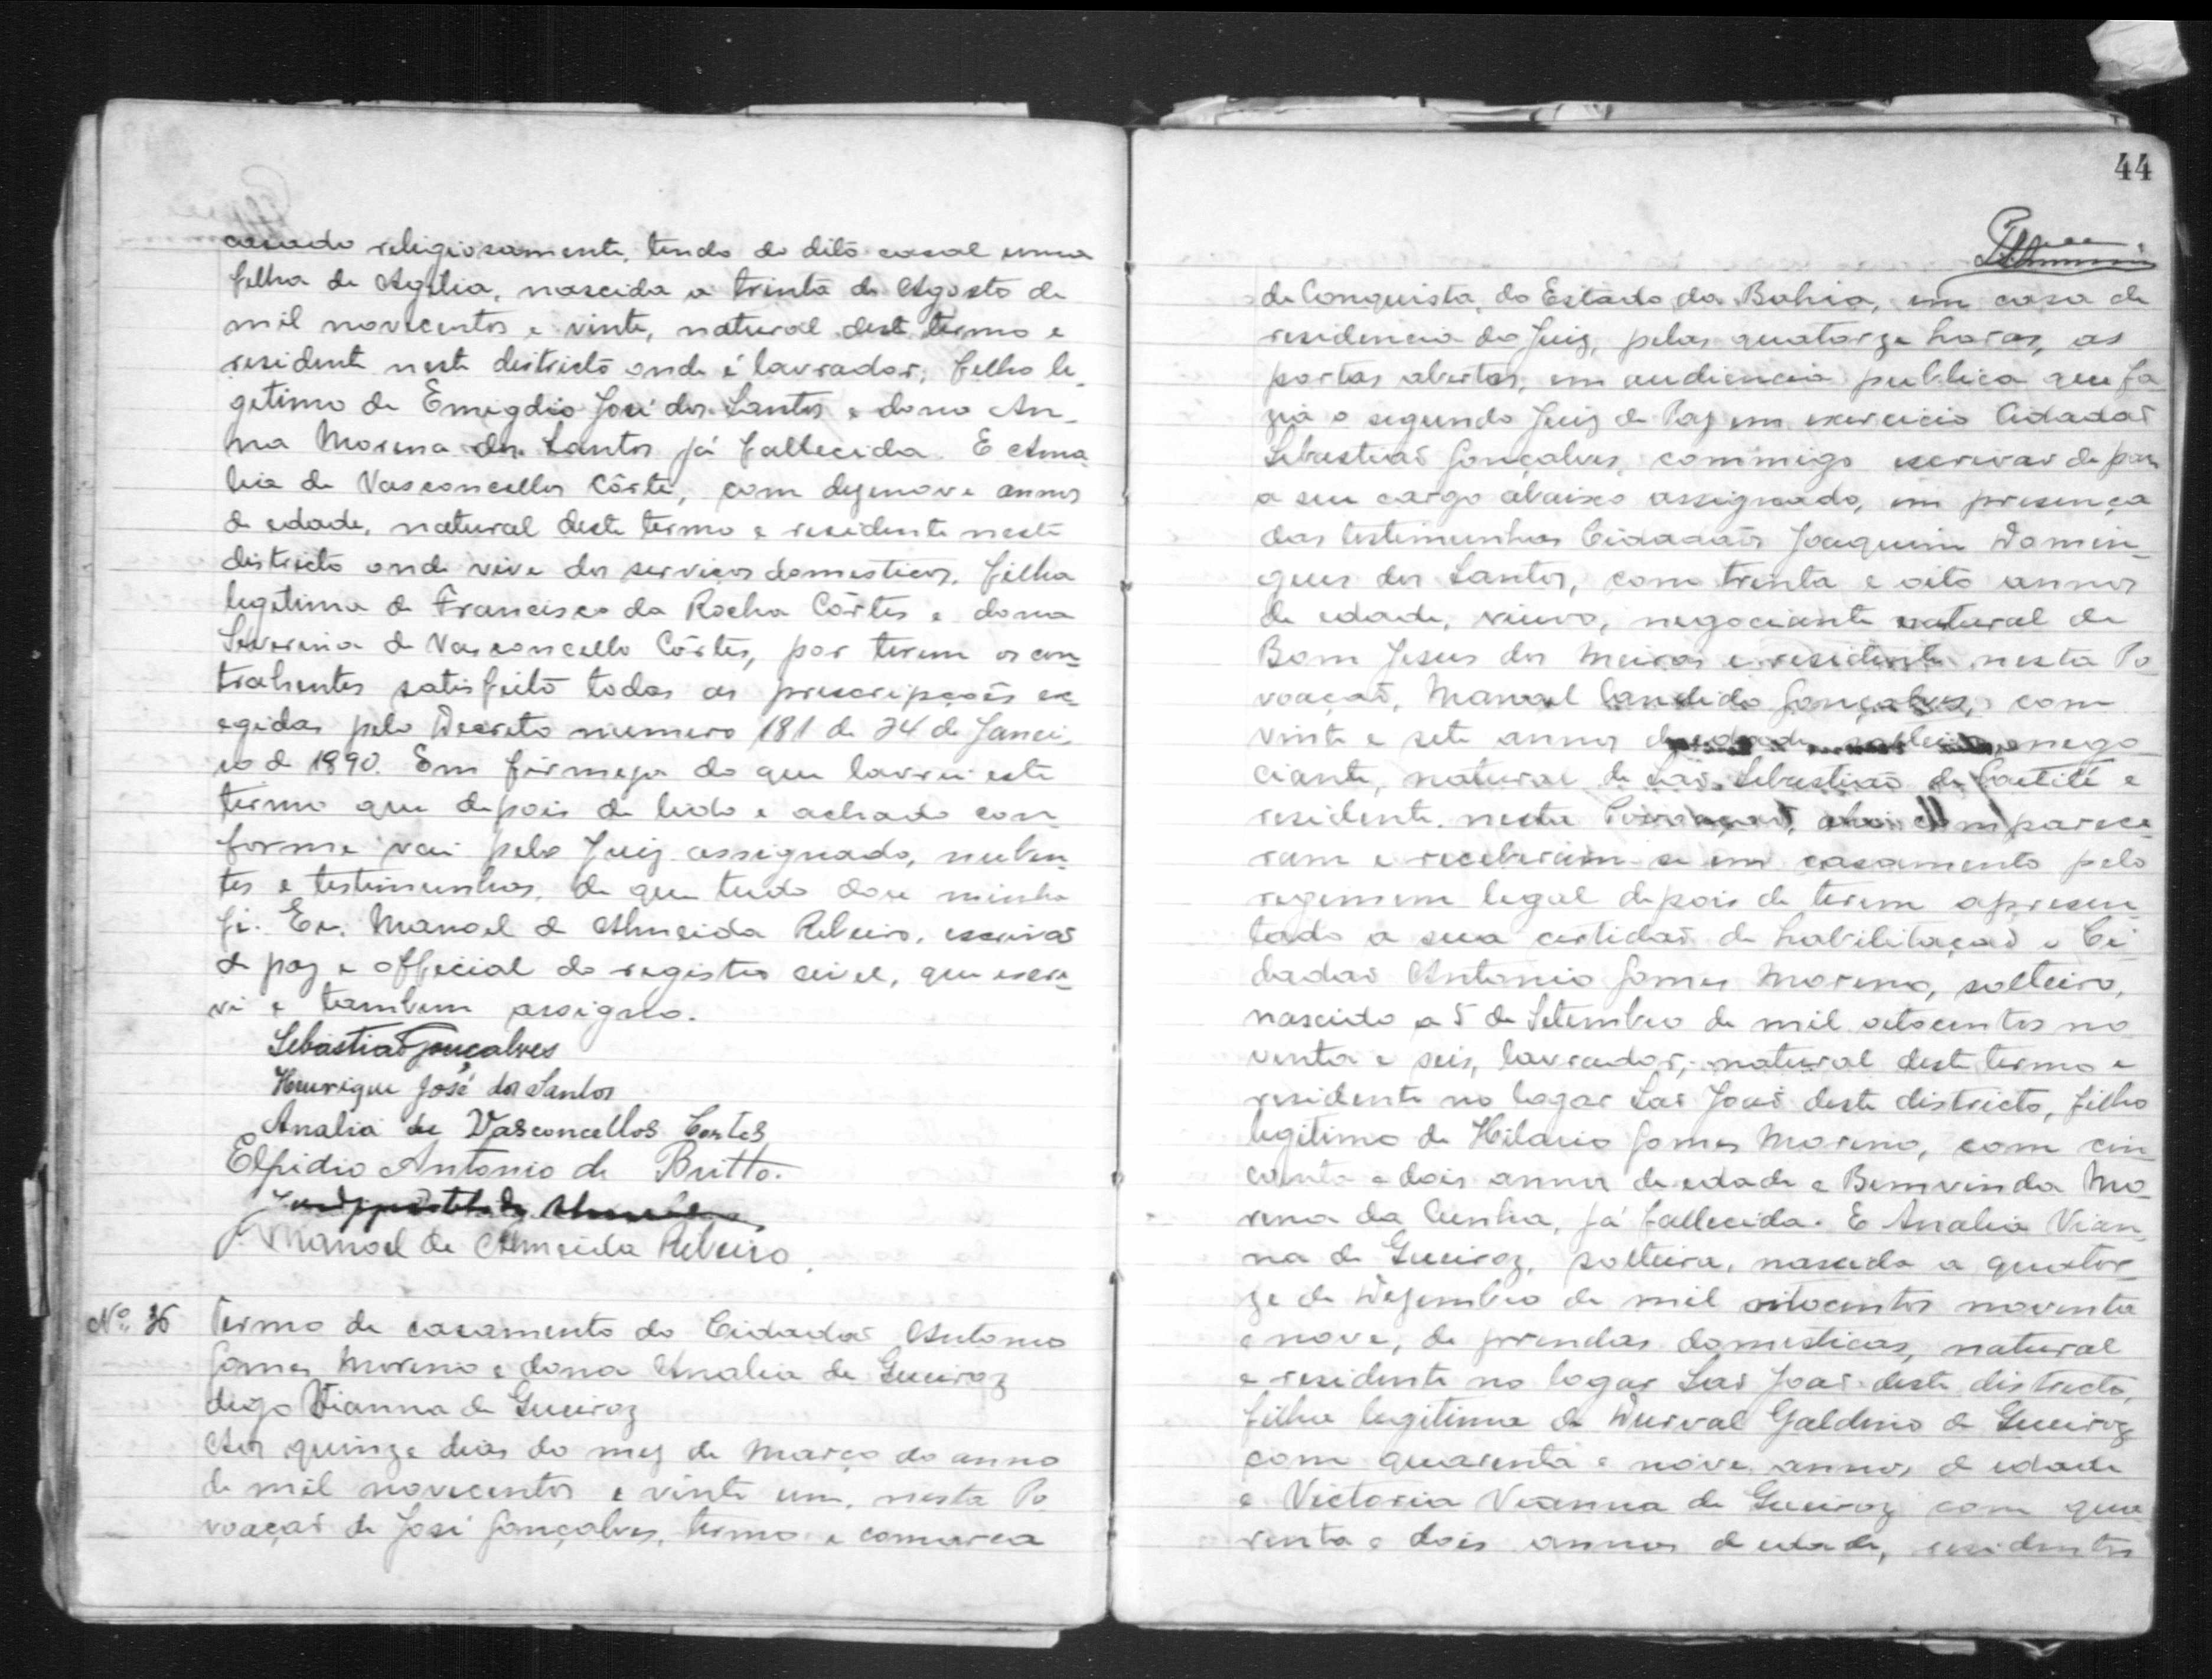 casado religiosamente, tendo do dito casal uma
filha de Agilia, nascida a trinta de Agosto de
mil novecentos e vinte, natural deste termo e
residente neste districto onde é lavrador, filho le-
getimo de Emigdio José dos Santos e dona An-
na Morena dos Santos já fallecida. E Ama-
lia de Vasconcellos Côrte, com dezenove annos
de edade, natural deste termo e residente neste
districto onde vive dos serviços domesticos, filha
legetima de Francisco da Rocha Côrtes e dona
Severina de Vasconcello Côrtes, por terem os con-
trahentes satisfeito todas as prescripções ex-
egidas pelo Decreto numero 181 de 24 de Janei-
ro de 1890. Em firmeza do que lavrei este
termo que depois de lido e achado con-
forme vai pelo Juiz assignado, nuben-
tes e testimunhas, de que tudo dou minha
fé. Eu, Manoel de Almeida Ribeiro, escrivaõ
de paz e official do registro civel, que escre-
vi e tambem assigno.
Sebastiaõ Gonçalves
Henrique José dos Santos
Analia de Vasconcellos Cortes
Elpidio Antonio de Britto.
Manoel de Almeida Ribeiro.
Nº 36 Termo de casamento do Cidadaõ Antonio
Gomes Moreno e dona Analia de Gueiroz
digo Vianna de Gueiroz
Aos quinze dias do mez de Março do anno
de mil novecentos e vinte um, nesta Po
voaçaõ de José Gonçalves, termo e comarca
44
de Conquista, do Estado da Bahia, em casa de
residencia do Juiz, pelas quatorze horas, as
portas abertas, em audiencia publica que fa-
zia o segundo Juiz de Paz em exercicio Cidadaõ
Sebastiaõ Gonçalves, commigo escrivaõ de paz
a seu cargo abaixo assignado, em presença
das testimunhas Cidadaõs Joaquim Domin-
gues dos Santos, com trinta e oito annos
de edade, viuvo, negociante natural de
Bom Jesus dos Meiras e residente nesta Po
voaçaõ, Manoel Candido Gonçalves, com
vinte e sete annos de edade, solteiro, nego
ciante, natural de Saõ Sebastiaõ de Caetité e
residente nesta Povoaçaõ, ahi comparece-
ram e receberam-se em casamento pelo
regimem legal depois de terem apresen
tado a sua certidaõ de habilitaçaõ o Ci
dadaõ Antonio Gomes Moreno, solteiro,
nascido a 5 de Setembro de mil oitocentos no
venta e seis, lavrador, natural deste termo e
residente no logar Saõ Joaõ deste districto, filho
legitimo de Hilario Gomes Moreno, com cin
coenta e dois annos de edade e Bemvinda Mo-
rena da Cunha, já fallecida. E Analia Vian-
na de Gueiroz, solteira, nascida a quator-
ze de Dezembro de mil oitocentos noventa
e nove, de prendas domesticas, natural
e residente no logar Saõ Joaõ deste districto,
filha legitima de Durval Galdino de Gueiroz
com quarenta e nove annos de edade
e Victoria Vianna de Gueiroz com qua
renta e dois annos de edade, residentes